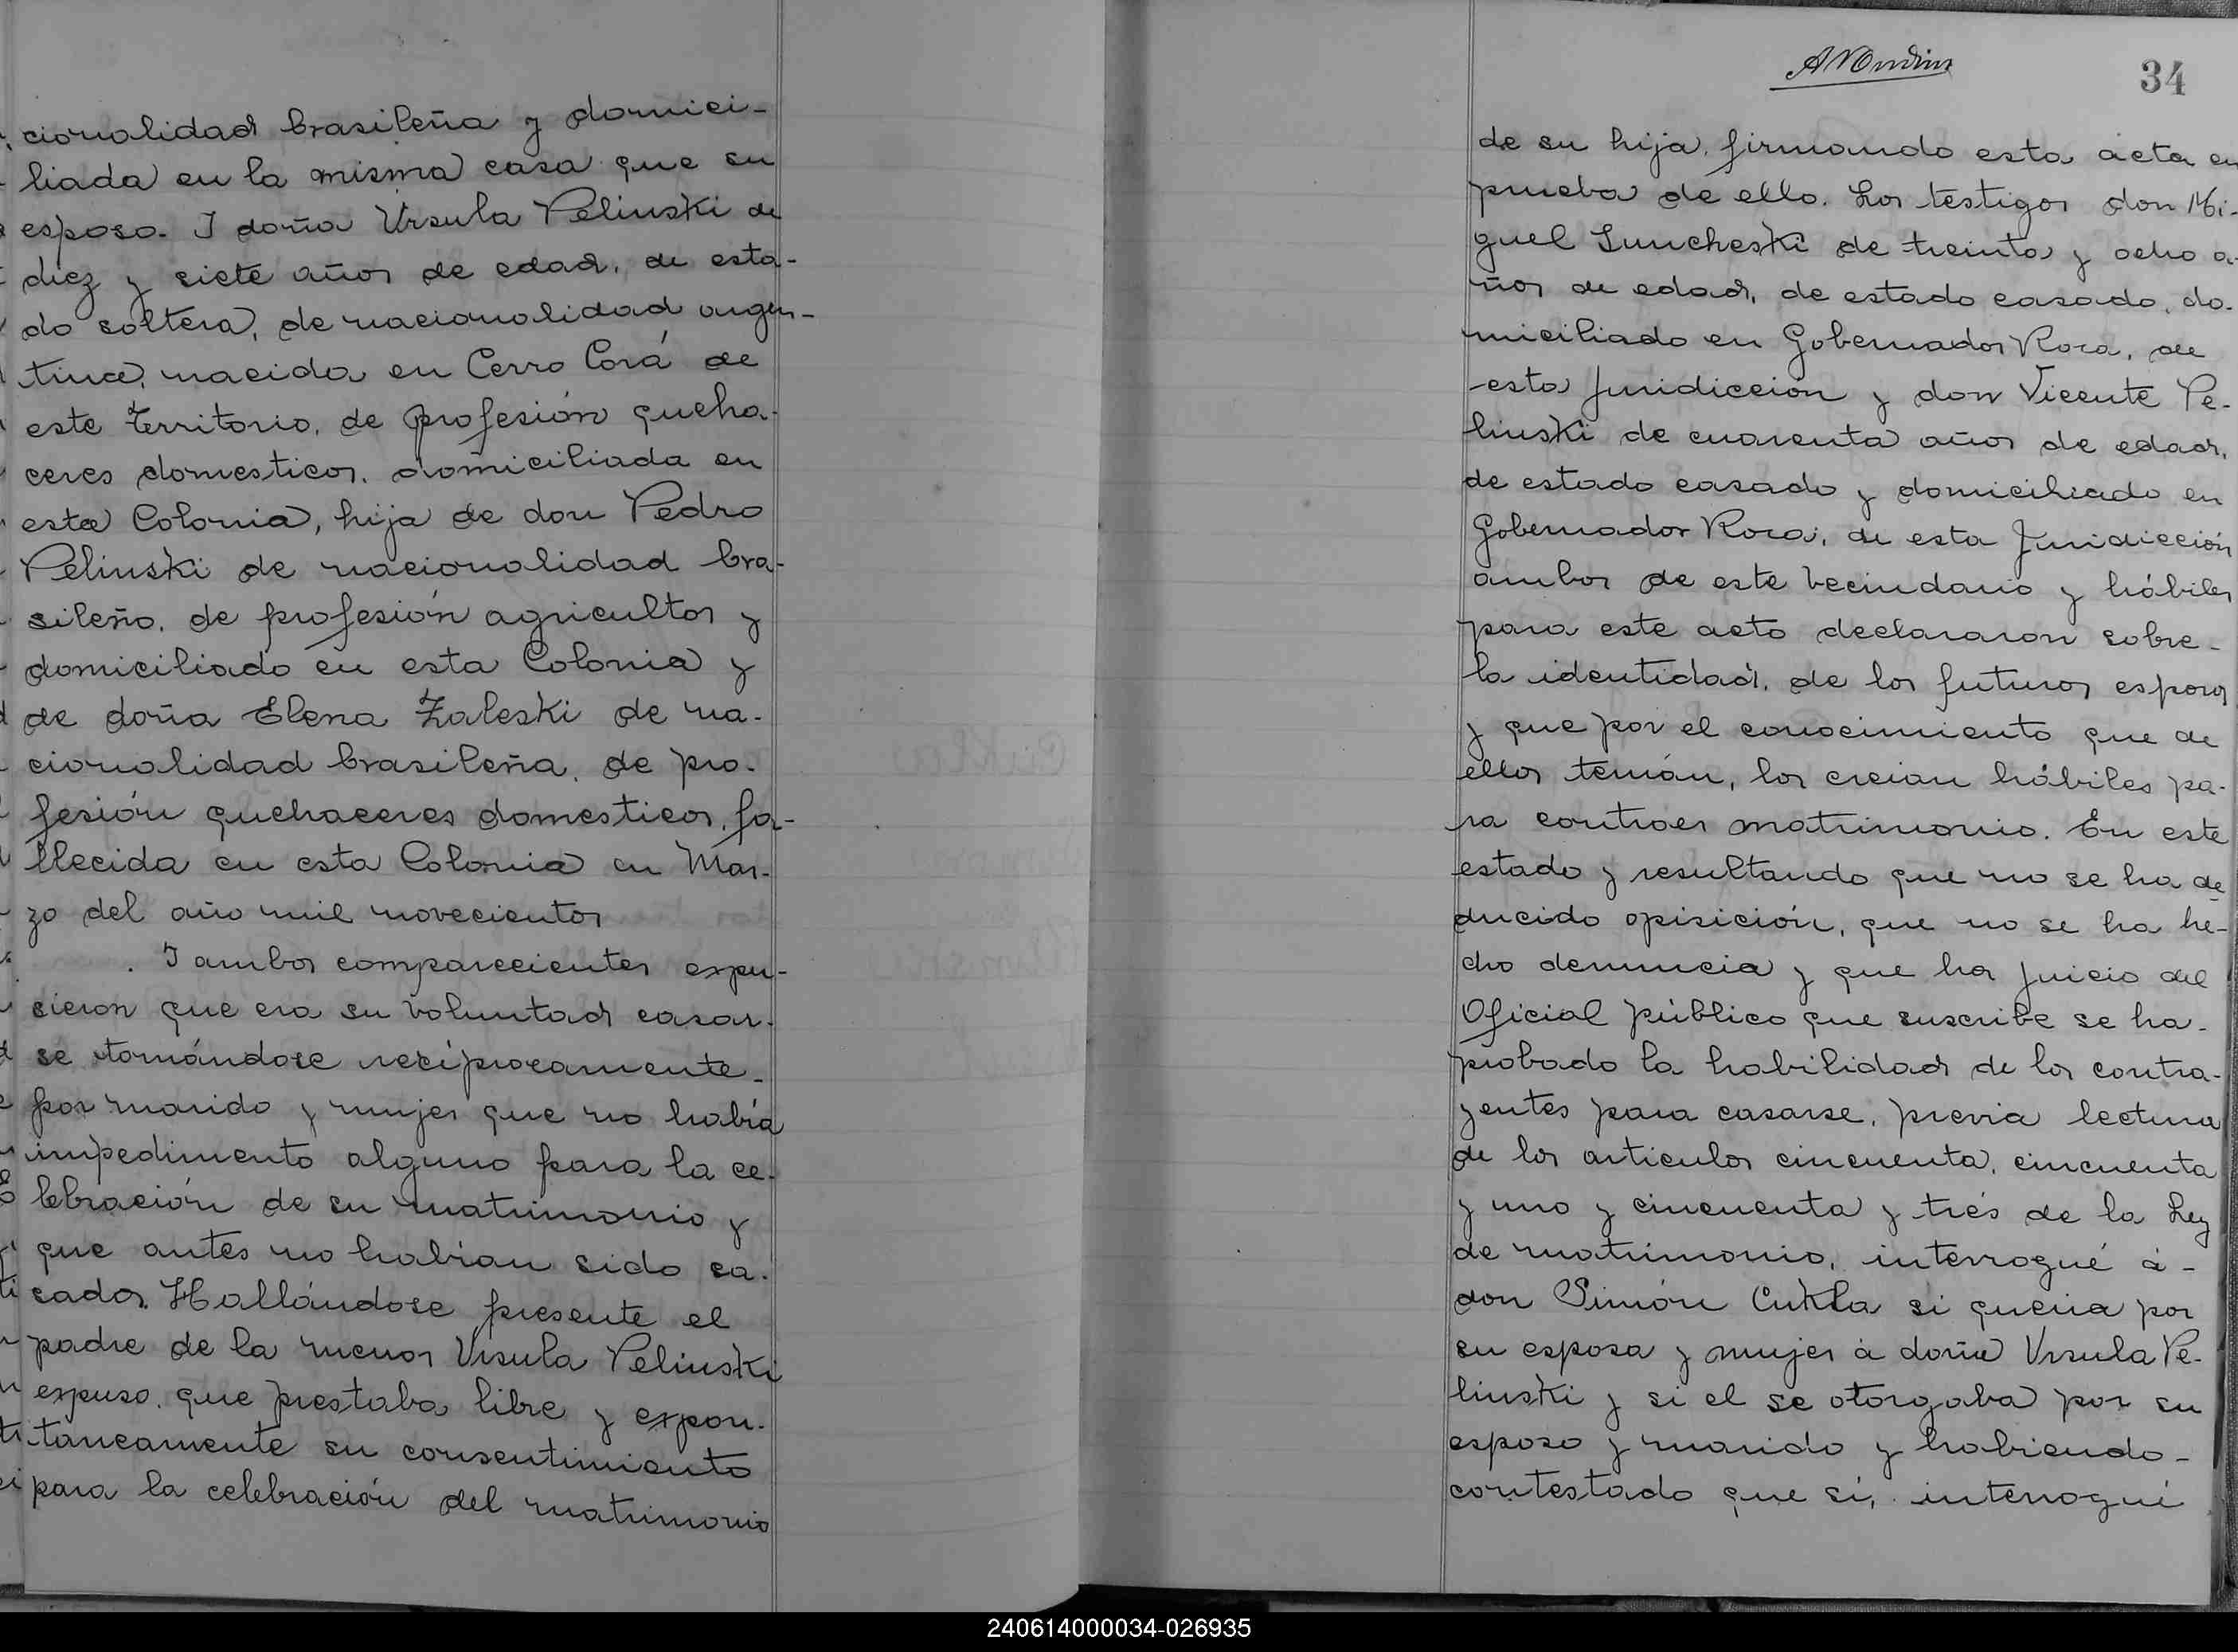 cionalidad brasileña y domici-
liada en la misma casa que su
esposo. I doña Ursula Pelinski de
diez y siete años de edad, de esta-
do soltera, de nacionalidad argen-
tina, nacida en Cerro Corá de
este Territorio, de profesión queha-
ceres domesticos, domiciliada en
esta Colonia, hija de don Pedro
Pelinski de nacionalidad bra-
sileño, de profesión agricultor y
domiciliado en esta Colonia y
de doña Elena Zaleski de na-
cionalidad brasileña, de pro-
fesión quehaceres domesticos, fa-
llecida en esta Colonia en Mar-
zo del año mil novecientos
. I ambos comparecientes expu-
sieron que era su voluntad casar-
se tomándose recíprocamente-
por marido y mujer que no había
impedimento alguno para la ce-
lebración de su matrimonio y
que antes no habían sido ca-
sados. Hallándose presente el
padre de la menor Ursula Pelinski
expuso, que prestaba libre y expon-
táneamente su consentimiento
para la celebración del matrimonio
34
de su hija, firmando esta acta en
prueba de ello. Los testigos don Mi-
guel Luncheski de treinta y ocho a-
ños de edad, de estado casado, do-
miciliado en Gobernador Roca, de
-esta Juridicción y don Vicente Pe-
linski de cuarenta años de edad,
de estado casado y domiciliado en
Gobernador Roca, de esta Juridicción
ambos de este vecindario y hábiles
para este acto declararon sobre-
la identidad, de los futuros esposos
y que por el conocimiento que de
ellos tenían, los creían hábiles pa-
ra contraer matrimonio. En este
estado y resultando que no se ha de
ducido opisición, que no se ha he-
cho denuncia y que ha juicio del
Oficial público que suscribe se ha-
probado la habilidad de los contra-
yentes para casarse, previa lectura
de los articulos cincuenta, cincuenta
y uno y cincuenta y trés de la Ley
de matrimonio, interrogué á-
don Simón Cukla si queria por
su esposa y mujer á doña Ursula Pe-
linski y si el se otorgaba por su
esposo y marido y habiendo-
contestado que si, interrogué
240614000034-026935